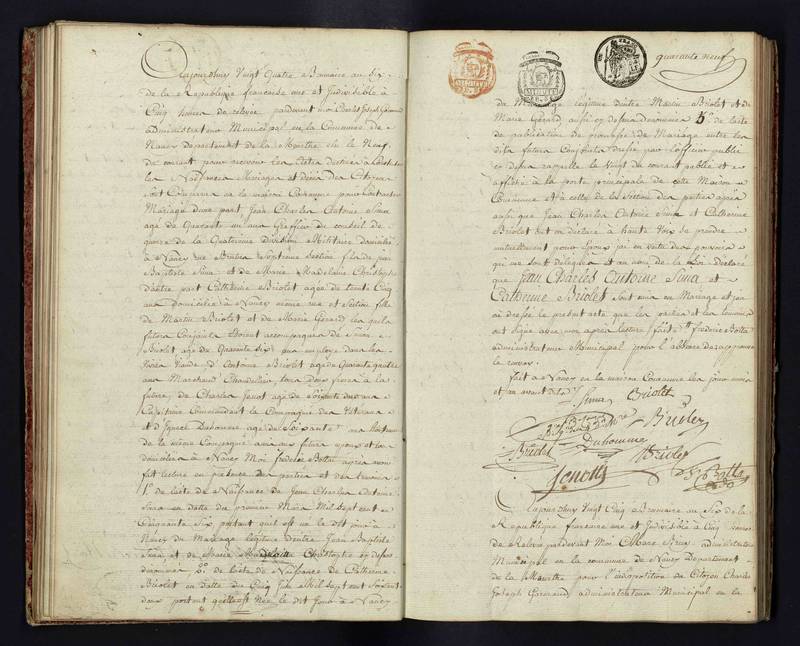 Aujourdhuy Vingt Quatre Brumaire an Six
de la Republique francaise une et Indivisible à
Cinq heures de relevée pardevant moi Charles Joseph
administrateur Municipal en la Commune de
Nancy Departement de la Meurthe élu le Neuf
du courant pour recevoir les actes destinés à Constater
les Naissances Mariages et décès des Citoyens
sont Comparus en la maison Commune pour Contracter
Mariage dune part Jean Charles Antoine Sima
agé de Quarante un ans Greffier du Conseil de
guerre de la Quatrieme division Militaire domicilié
à Nancy rue Septieme Section fils de Jean
Baptiste Sima et de Marie Madelaine Christophe
d'autre part Catherine Briolet agée de trente Cinq
ans domiciliée à Nancy même rue et Section fille
de Martin Briolet et de Marie Gerard lesquels
futurs Conjoints étoient accompagnés de
Briolet agé de Quarante six ans employé dans les
d'Antoine Briolet agé de Quarante quatre
ans Marchand Chandelier, tous deux freres à la
future, de Charles Jenot agé de Soixante deux ans
Capitaine Commandant la Compagnie des Veterans
et d'Ignace Duhomme agé de Soixante ans
de la même Compagnie amis aux futurs Epoux et tous
domiciliés à Nancy Moi frederic Botta après avoir
fait lecture en presence des parties et des temoins
1º de l'acte de Naissance de Jean Charles Antoine
Sima en datte du premier Mars Mil Sept cent
Cinquante Six portant quil est né le dit jour à
Nancy du Mariage légitime d'entre Jean Baptiste
Sima et de Marie Madelaine Christophe cy dessus
denommés 2º de l'acte de Naissance de Catherine
Briolet en datte du Cinq Mil Sept cent Soixante
deux portant quelle est Née le dit Jour à Nancy
quarante neuf
du Mariage légitime d'entre Martin Briolet et de
Marie Gérard aussi cy dessus denommés 3º de l'acte
de publication de promesse de Mariage entre les
dits futurs Conjoints dressé par l'officier public
cy dessus rappellé le Vingt du courant publié et
affiché à la porte principale de cette Maison
Commune et à celle de la Section des parties après
aussi que Jean Charles Antoine Sima et Catherine
Briolet ont eu declaré à haute Voix se prendre
mutuellement pour Epoux j'ai en vertu des pouvoirs
qui me sont délégués et au nom de la Loi declaré
que Jean Charles Antoine Sima et
Catherine Briolet sont unis en Mariage et j'en
ai dressé le présent acte que les parties et les temoins
ont signé avec moi après lecture faite frederic Botta
administrateur Municipal pour l'absence
fait à Nancy en la maison Commune les jour mois
et an avant dits
Sima Briolet
Briolet
Duhomme
Briolet Briolet
Jenot
Botta
Aujourdhuy Vingt Cinq Brumaire an Six de la
Republique francaise une et Indivisible à Cinq heures
de Relevée pardevant Moi administrateur
Municipal en la commune de Nancy Departement
de la Meurthe pour l'indisposition du Citoyen Charles
Joseph administrateur Municipal en la